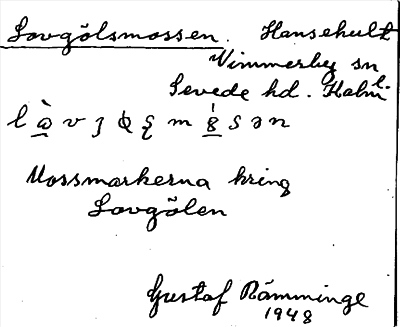 Lovgölsmossen. Hansehult
Vimmerby sn
Sevede hd. Kalm. l.
Mossmarkerna kring
Lovgölen
Gustaf Rämminge
1948